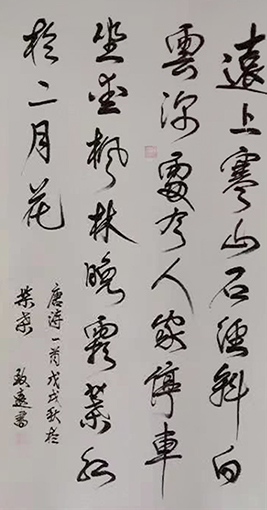 遠上寒山石徑斜白
雲深處有人家停車
坐愛楓林晚霜葉紅
於二月花
唐詩一首戊戌秋於
柴桑 致遠書